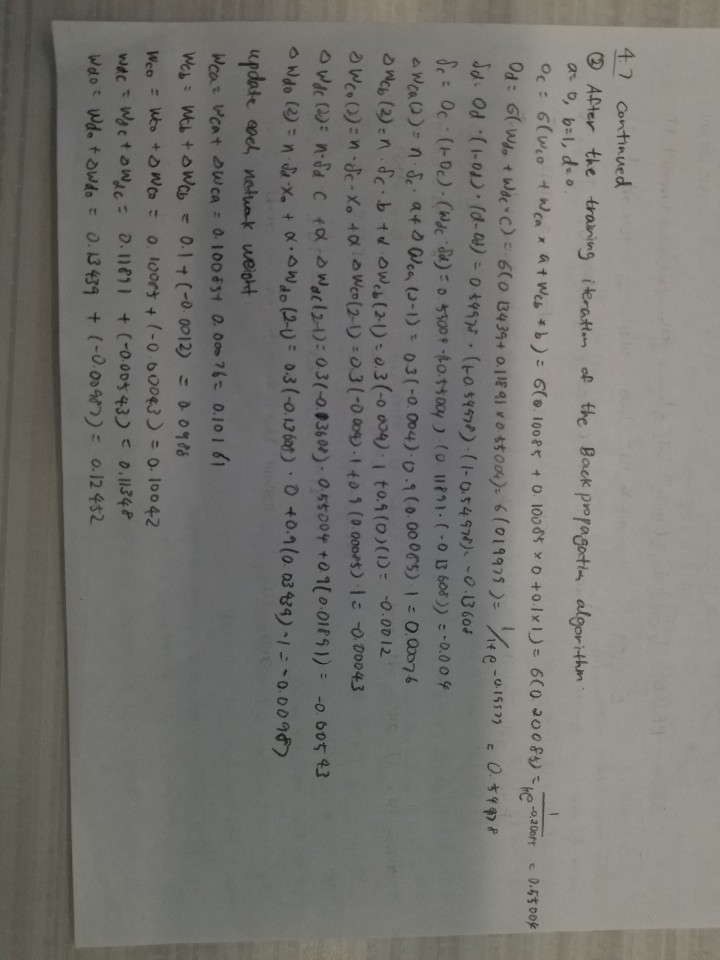 4.7 continued
② After the training iteration of the Backpropagation algorithm.
a=0, b=1, d=0.
Oc = 6(Wc0 + Wca × a + Wcb * b) = 6(0.10085 + 0.10085 × 0 + 0.1×1) = 6(0.20085) = 1/1+e^-0.20085 = 0.55004
Od = 6(Wd0 + Wdc × C) = 6(0.13439 + 0.11891 × 0.55004) = 6(0.19979) = 1/1+e^-0.19979 = 0.54978
δd = Od · (1-Od) · (d-Od) = 0.54978 · (1-0.54978) · (1-0.54978) = -0.13608
δc = Oc · (1-Oc) · (Wdc · δd) = 0.55004 · (1-0.55004) · (0.11891 · (-0.13608)) = -0.004
△Wca(2) = n · δc · a + △Wca(2-1) = 0.3(-0.004) · 0.9(0.00085) · 1 = 0.00076
△Wcb(2) = n · δc · b + α △Wcb(2-1) = 0.3(-0.004) · 1 + 0.9(0)(1) = -0.0012
△Wc0(2) = n · δc · x0 + α · △Wc0(2-1) = 0.3(-0.004) · 1 + 0.9(0.00085) · 1 = -0.00043
△Wdc(2) = n · δd C + α · △Wdc(2-1) = 0.3(-0.13608) · 0.55004 + 0.9(0.01891)) = -0.00543
△Wd0(2) = n · δd · x0 + α · △Wd0(2-1) = 0.3(-0.13608) · 0 + 0.9(0.03439) · 1 = -0.00987)
update each network weight
Wca = Wca + △Wca = 0.10085 + 0.00076 = 0.10161
Wcb = Wcb + △Wcb = 0.1 + (-0.0012) = 0.0988
Wc0 = Wc0 + △Wc0 = 0.10085 + (-0.00043) = 0.10042
Wdc = Wdc + △Wdc = 0.11891 + (-0.00543) = 0.11348
Wd0 = Wd0 + △Wd0 = 0.13439 + (-0.00987) = 0.12452